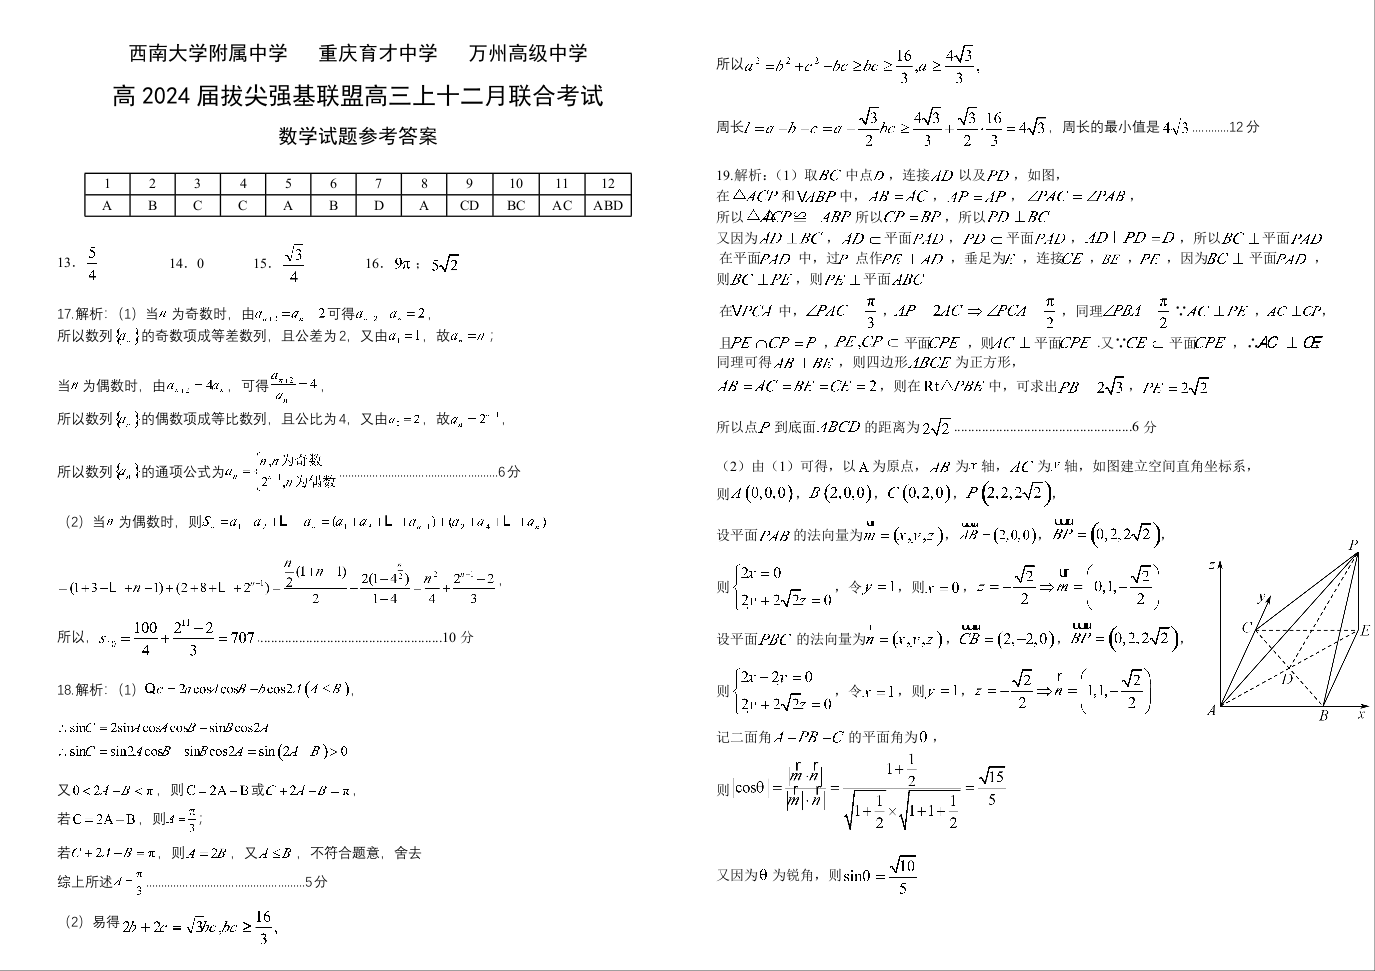 西南大学附属中学 重庆育才中学 万州高级中学
高 2024 届拔尖强基联盟高三上十二月联合考试
数学试题参考答案
1 2 3 4 5 6 7 8 9 10 11 12
A B C C A B D A CD BC AC ABD
13. 5/4 14. 0 15. √3/4 16. 9π ; 5√2
17.解析:（1）当n 为奇数时，由a_{n+2}=a_n 2可得a_{n+2} a_n = 2,
所以数列{a_n}的奇数项成等差数列，且公差为 2，又由a_1=1，故a_n=n；
当n 为偶数时，由a_{n+2}=4a_n，可得a_{n+2}/a_n=4，
所以数列{a_n}的偶数项成等比数列，且公比为 4，又由a_2=2，故a_n=2^{n-1}，
所以数列{a_n}的通项公式为a_n={n,n为奇数 2^{n-1},n为偶数 ......6 分
（2）当n 为偶数时，则S_n=a_1 a_2+L a_n=(a_1+a_3+L +a_{n-1})+(a_2+a_4+L +a_n)
=(1+3+L +n-1)+(2+8+L +2^{n-1})=n/2(1+n-1)/2 - 2(1-4^{n/2})/(1-4)=n²/4+(2^{n+1}-2)/3，
所以，S_10=100/4+(2^11-2)/3=707 ......10 分
18.解析:（1）Qc=2acosAcosB-bcos2A(A≤B)，
∴sinC=2sinAcosAcosB-sinBcos2A
∴sinC=sin2AcosB sinBcos2A=sin(2A B)>0
又0<2A-B<π，则C=2A-B或C+2A-B=π，
若C=2A-B，则A=π/3；
若C+2A-B=π，则A=2B，又A≤B，不符合题意，舍去
综上所述A=π/3 ......5 分
（2）易得2b+2c=√3bc,bc≥16/3,
所以a²=b²+c²-bc≥bc≥16/3,a≥4√3/3,
周长l=a-b-c=a-√3/2bc≥4√3/3+√3/2·16/3=4√3，周长的最小值是4√3 ............12 分
19.解析:（1）取BC 中点D，连接AD 以及PD，如图，
在△ACP 和VABP中，AB=AC，AP=AP，∠PAC=∠PAB，
所以△ACP≌ ABP 所以CP=BP，所以PD⊥BC
又因为AD⊥BC，AD⊂平面PAD，PD⊂平面PAD，AD I PD=D，所以BC⊥平面PAD
在平面PAD 中，过P 点作PE⊥AD，垂足为E，连接CE，BE，PE，因为BC⊥平面PAD，
则BC⊥PE，则PE⊥平面ABC
在VPCA 中，∠PAC π/3，AP 2AC⇒∠PCA π/2，同理∠PBA π/2 ∵AC⊥PE，AC⊥CP，
且PE∩CP=P，PE,CP⊂平面CPE，则AC⊥平面CPE .又∵CE⊂平面CPE，∴AC⊥CE
同理可得AB⊥BE，则四边形ABCE 为正方形，
AB=AC=BE=CE=2，则在Rt△PBE 中，可求出PB 2√3，PE=2√2
所以点P 到底面ABCD 的距离为2√2 ......6 分
（2）由（1）可得，以A为原点，AB 为x 轴，AC 为y 轴，如图建立空间直角坐标系，
则A(0,0,0)，B(2,0,0)，C(0,2,0)，P(2,2,2√2)，
设平面PAB 的法向量为m=(x,y,z)，AB=(2,0,0)，BP=(0,2,2√2)，
则{2x=0 2y+2√2z=0，令y=1，则x=0，z=-√2/2⇒m=(0,1,-√2/2)
设平面PBC 的法向量为n=(x,y,z)，CB=(2,-2,0)，BP=(0,2,2√2)，
则{2x-2y=0 2y+2√2z=0，令x=1，则y=1，z=-√2/2⇒n=(1,1,-√2/2)
记二面角A-PB-C 的平面角为θ，
则|cosθ|=|m·n|/|m|·|n|=(1+1/2)/(√(1+1/2)×√(1+1+1/2))=√15/5
又因为θ 为锐角，则sinθ=√10/5
P
z
y
C
E
D
A
B
x